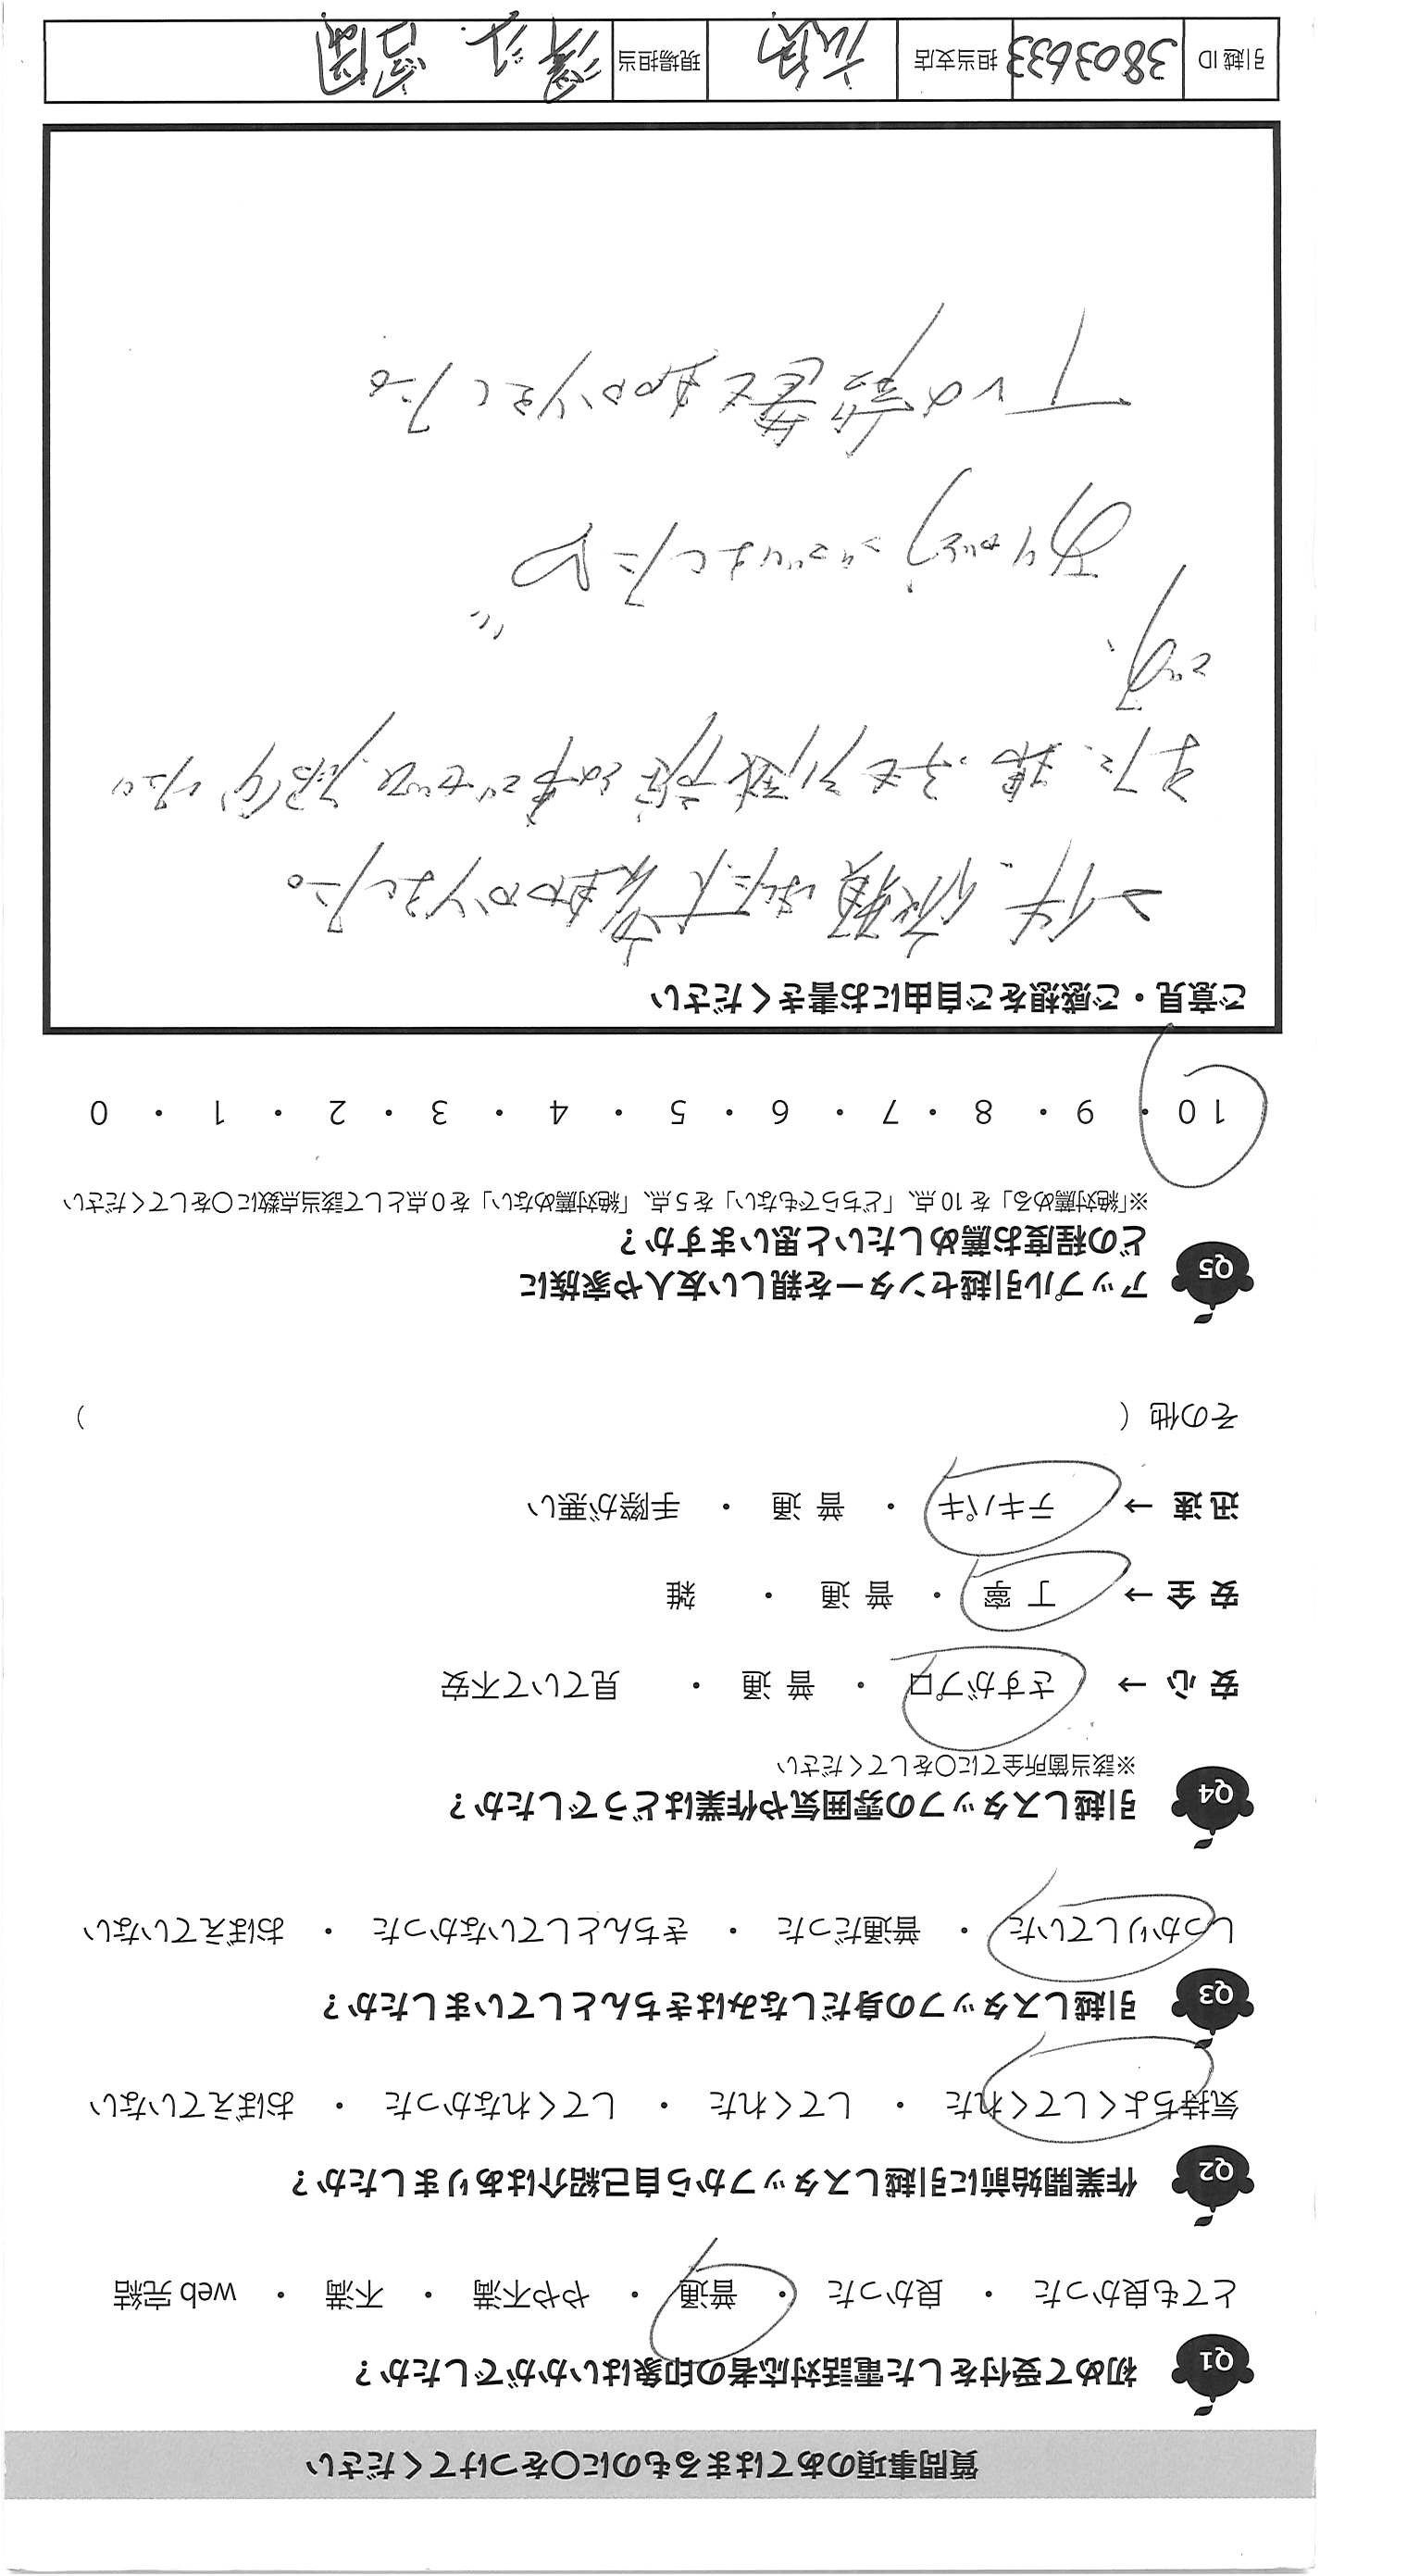 質問事項のあてはまるものに〇をつけてください
Q1 初めて受付をした電話対応者の印象はいかがでしたか？
とても良かった ・ 良かった ・ 普通 ・ やや不満 ・ 不満 ・ web 完結
Q2 作業開始前に引越しスタッフから自己紹介はありましたか？
気持ちよくしてくれた ・ してくれた ・ してくれなかった ・ おぼえていない
Q3 引越しスタッフの身だしなみはきちんとしていましたか？
しっかりしていた ・ 普通だった ・ きちんとしていなかった ・ おぼえていない
Q4 引越しスタッフの雰囲気や作業はどうでしたか？
※該当箇所全てに〇をしてください
安 心 → さすがプロ ・ 普 通 ・ 見ていて不安
安 全 → 丁 寧 ・ 普 通 ・ 雑
迅 速 → テキパキ ・ 普 通 ・ 手際が悪い
その他（ ）
Q5 アップル引越センターを親しい友人や家族に
どの程度お薦めしたいと思いますか？
※「絶対薦める」を 10 点、「どちらでもない」を 5 点、「絶対薦めない」を 0 点として該当点数に〇をしてください
10 ・ 9 ・ 8 ・ 7 ・ 6 ・ 5 ・ 4 ・ 3 ・ 2 ・ 1 ・ 0
ご意見・ご感想をご自由にお書きください
助かりました。
また、
ありがとうございました
助かりました。
引越 ID 3803633 担当支店 現場担当